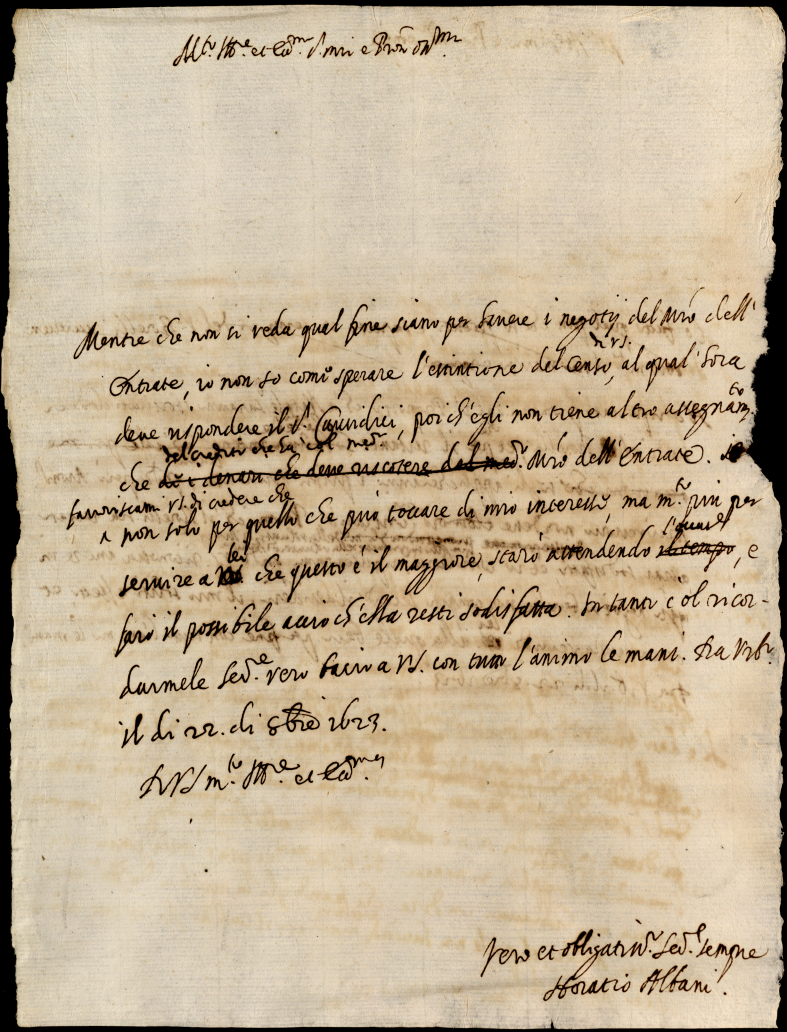 M.to Ill.re et Ecc.m S.r mio e P.ron oss.mo
Mentre che non si veda qual fine siano per havere i negotij del Mro dell'
di V.S.
Entrate, io non so com'o sperare l'estintione del Censo, al qual' hora
deve rispondere il S.r Causidici, poich'egli non tiene altro assegnam.to
del credito che ha col med.o
che di denari che deve riscotere dal med.o Mro dell'Entrate.
favoriscami V.S. di credere che
non solo per quello che può toccare di mio interesse, ma m.to più per
lei
servire a che questo è il maggiore, starò attendendo il tempo, e
farò il possibile acciò ch'ella resti sodisfatta. In tanto c'ol ricor-
darmele Ser.e vero bacio a V.S. con tutto l'animo le mani. Da Urb.o
il di 22. di 8bre 1623.
Di V.S. m.to Ill.re et Ecc.ma
Vero et obligatiss.o Ser.e sempre
Horatio Albani.